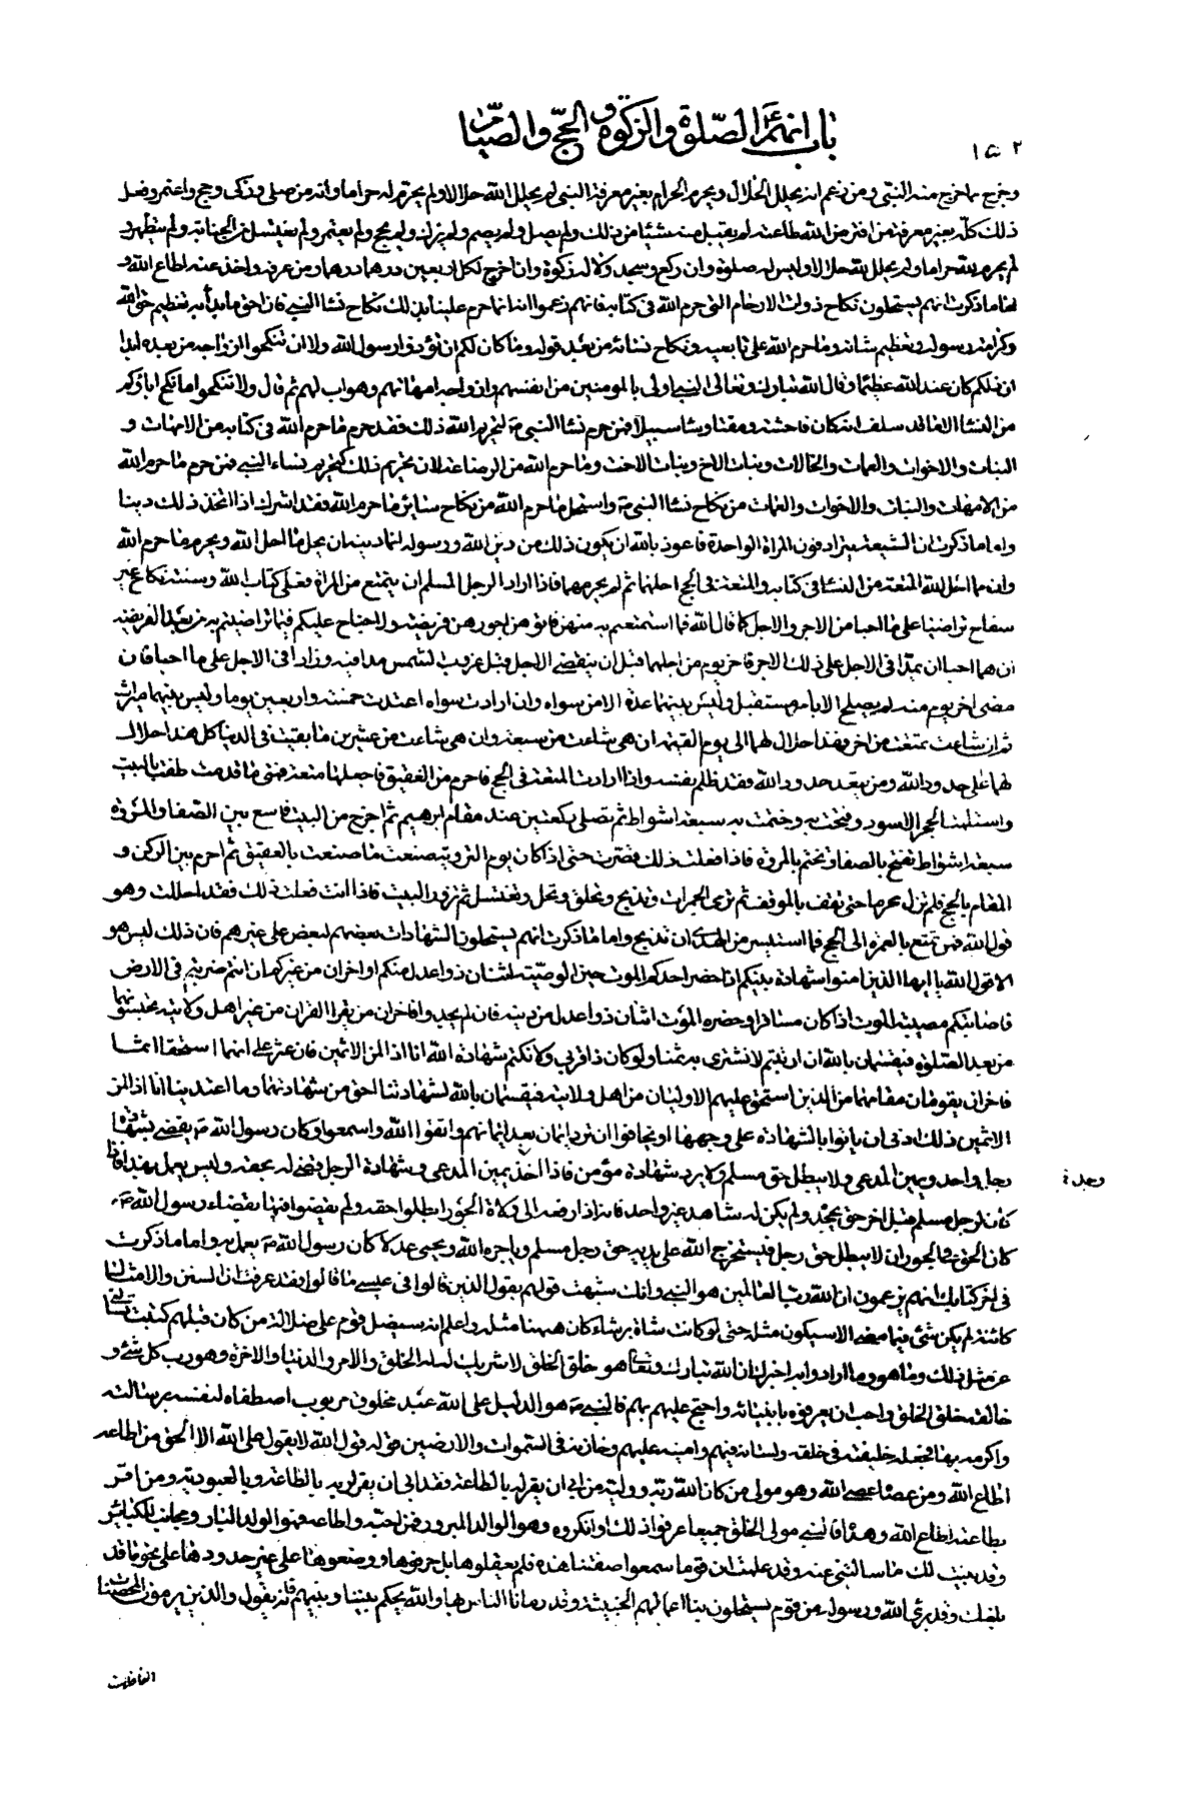 باب انهم ع الصلوة والزكوة والحج والصيام
١٥٢
وخرج ما خرج منه النبي ومن زعم انه يحلل الحلال ويحرم الحرام بغير معرفة النبي لم يحلل الله حلالا ولم يحرم له حراما وانه من صلى وزكى وحج واعتمر وفعل
ذلك كله بغير معرفة من افترض الله طاعته لم يقبل منه شيئا من ذلك ولم يصل ولم يصم ولم يزك ولم يحج ولم يعتمر ولم يغتسل من الجنابة ولم يتطهر و
لم يحرم لله حراما ولم يحلل لله حلالا وليس له صلوة وان ركع وسجد ولا له زكوة وان اخرج لكل اربعين درهما درهما ومن عرفه واخذ عنه اطاع الله و
اما ما ذكرت انهم يستحلون نكاح ذوات الارحام التي حرم الله في كتابه فانهم زعموا انه انما حرم علينا بذلك نكاح نساء النبي فان احق ما بدأ به تعظيم حق الله
وكرامة رسوله وتعظيم شانه وما حرم الله على تابعيه ونكاح نسائه من بعد قوله وما كان لكم ان تؤذوا رسول الله ولا ان تنكحوا ازواجه من بعده ابدا
ان ذلكم كان عند الله عظيما وقال الله تبارك وتعالى النبي اولى بالمومنين من انفسهم وازواجه امهاتهم وهو اب لهم ثم قال ولا تنكحوا ما نكح اباؤكم
من النساء الا ما قد سلف انه كان فاحشة ومقتا وساء سبيلا فمن حرم نساء النبي ص لتحريم الله ذلك فقد حرم ما حرم الله في كتابه من الامهات و
البنات والاخوات والعمات والخالات وبنات الاخ وبنات الاخت وما حرم الله من الرضاعة لان تحريم ذلك كتحريم نساء النبي فمن حرم ما حرم الله
من الامهات والبنات والاخوات والعمات من نكاح نساء النبي ص واستحل ما حرم الله من نكاح سائر ما حرم الله فقد اشرك اذا اتخذ ذلك دينا
واما ما ذكرت ان الشيعة يترادفون المراة الواحدة فاعوذ بالله ان يكون ذلك من دين الله ورسوله انما دينه ان يحل ما احل الله ويحرم ما حرم الله
وان مما احل الله المتعة من النساء في كتابه والمتعة في الحج احلهما ثم لم يحرمهما فاذا اراد الرجل المسلم ان يتمتع من المراة فعلى كتاب الله وسنته نكاح غير
سفاح تراضيا على ما احبا من الاجر والاجل كما قال الله فما استمتعتم به منهن فاتوهن اجورهن فريضة ولا جناح عليكم فيما تراضيتم به من بعد الفريضة
ان هما احبا ان يمدا في الاجل على ذلك الاجر فاخر يوم من اجلهما قبل ان ينقضي الاجل قبل غروب الشمس مدا فيه وزادا في الاجل على ما احبا فان
مضى اخر يوم منه لم يصلح الا بامر مستقبل وليس بينهما عدة الا من سواه وان ارادت سواه اعتدت خمسة واربعين يوما وليس بينهما ميراث
ثم ان شاءت تمتعت من اخر فهذا حلال لهما الى يوم القيمة ان هي شاءت من سبعة وان هي شاءت من عشرين ما بقيت في الدنيا كل هذا حلال
لهما على حدود الله ومن يتعد حدود الله فقد ظلم نفسه واذا اردت المتعة في الحج فاحرم من العقيق فاجعلها متعة فمتى ما قدمت طفت بالبيت
واستلمت الحجر الاسود وفتحت به وختمت به سبعة اشواط ثم تصلى ركعتين عند مقام ابرهيم ثم اخرج من البيت فاسع بين الصفا والمروة
سبعة اشواط تفتح بالصفا وتختم بالمروة فاذا فعلت ذلك قصرت حتى اذا كان يوم التروية صنعت ما صنعت بالعقيق ثم احرم بين الركن و
المقام بالحج فلم تزل محرما حتى تقف بالموقف ثم ترمى الجمرات وتذبح وتحلق وتحل وتغتسل ثم تزور البيت فاذا انت فعلت ذلك فقد احللت وهو
قول الله فمن تمتع بالعمرة الى الحج فما استيسر من الهدى ان تذبح واما ما ذكرت انهم يستحلون الشهادات بعضهم لبعض على غيرهم فان ذلك ليس هو
الا قول الله يا ايها الذين امنوا شهادة بينكم اذا حضر احدكم الموت حين الوصية اثنان ذوا عدل منكم او اخران من غيركم ان انتم ضربتم في الارض
فاصابتكم مصيبة الموت اذا كان مسافرا وحضره الموت اثنان ذوا عدل من دينه فان لم يجدوا فاخران ممن يقرا القران من غير اهل ولايته تحبسونهما
من بعد الصلوة فيقسمان بالله ان ارتبتم لا نشترى به ثمنا ولو كان ذا قربى ولا نكتم شهادة الله انا اذا لمن الاثمين فان عثر على انهما استحقا اثما
فاخران يقومان مقامهما من الذين استحق عليهم الاوليان من اهل ولايته فيقسمان بالله لشهادتنا احق من شهادتهما وما اعتدينا انا اذا لمن
الاثمين ذلك ادنى ان ياتوا بالشهادة على وجهها او يخافوا ان ترد ايمان بعد ايمانهم واتقوا الله واسمعوا وكان رسول الله ص يقضي بشهادة
رجل واحد ويمين المدعى ولا يبطل حق مسلم ولا يرد شهادة مؤمن فاذا اخذ يمين المدعى وشهادة الرجل قضى له بحقه وليس يعمل بهذا فاذا
كان لرجل مسلم قبل اخر حق يجحده ولم يكن له شاهد غير واحد فانه اذا رفعه الى ولاة الجور ابطلوا حقه ولم يقضوا فيها بقضاء رسول الله ص
كان الحق في الجور ان لا يبطل حق رجل فيستخرج الله على يديه حق رجل مسلم وياجره الله ويحيى عدلا كان رسول الله ص يعمل به واما ما ذكرت
في اخر كتابك انهم يزعمون ان الله رب العالمين هو النبي وانك شبهت قولهم بقول الذين قالوا في عيسى ما قالوا فقد عرفت ان السنن والامثال
كائنة لم يكن شئ فيما مضى الا سيكون مثله حتى لو كانت شاة برشاء كان ههنا مثله واعلم انه سيضل قوم على ضلالة من كان قبلهم كتبت تسألني
عن مثل ذلك وما هو وما ارادوا به اخبرك ان الله تبارك وتعالى هو خلق الخلق لا شريك له له الخلق والامر والدنيا والاخرة وهو رب كل شئ و
خالقه خلق الخلق واحب ان يعرفوه بانبيائه واحتج عليهم بهم فالنبي ص هو الدليل على الله عبد مخلوق مربوب اصطفاه لنفسه برسالته
واكرمه بها فجعله خليفته في خلقه ولسانه فيهم وامينه عليهم وخازنه في السموات والارضين قوله قول الله لا يقول على الله الا الحق من اطاعه
اطاع الله ومن عصاه عصى الله وهو مولى من كان الله ربه ووليه من ابى ان يقر له بالطاعة فقد ابى ان يقر لربه بالطاعة وبالعبودية ومن اقر
بطاعته اطاع الله وهداه فالنبي مولى الخلق جميعا عرفوا ذلك او انكروه وهو الوالد المبرور فمن احبه واطاعه فهو الولد البار ومجانب للكبائر
وقد بينت لك ما سالتني عنه وقد علمت ان قوما سمعوا صفتنا هذه فلم يعقلوها بل حرفوها ووضعوها على غير حدودها على نحو ما قد
بلغك وقد برئ الله ورسوله من قوم يستحلون بنا اعمالهم الخبيثة وقد رمانا الناس بها والله يحكم بيننا وبينهم فانه يقول والذين يرمون المحصنات
الغافلات